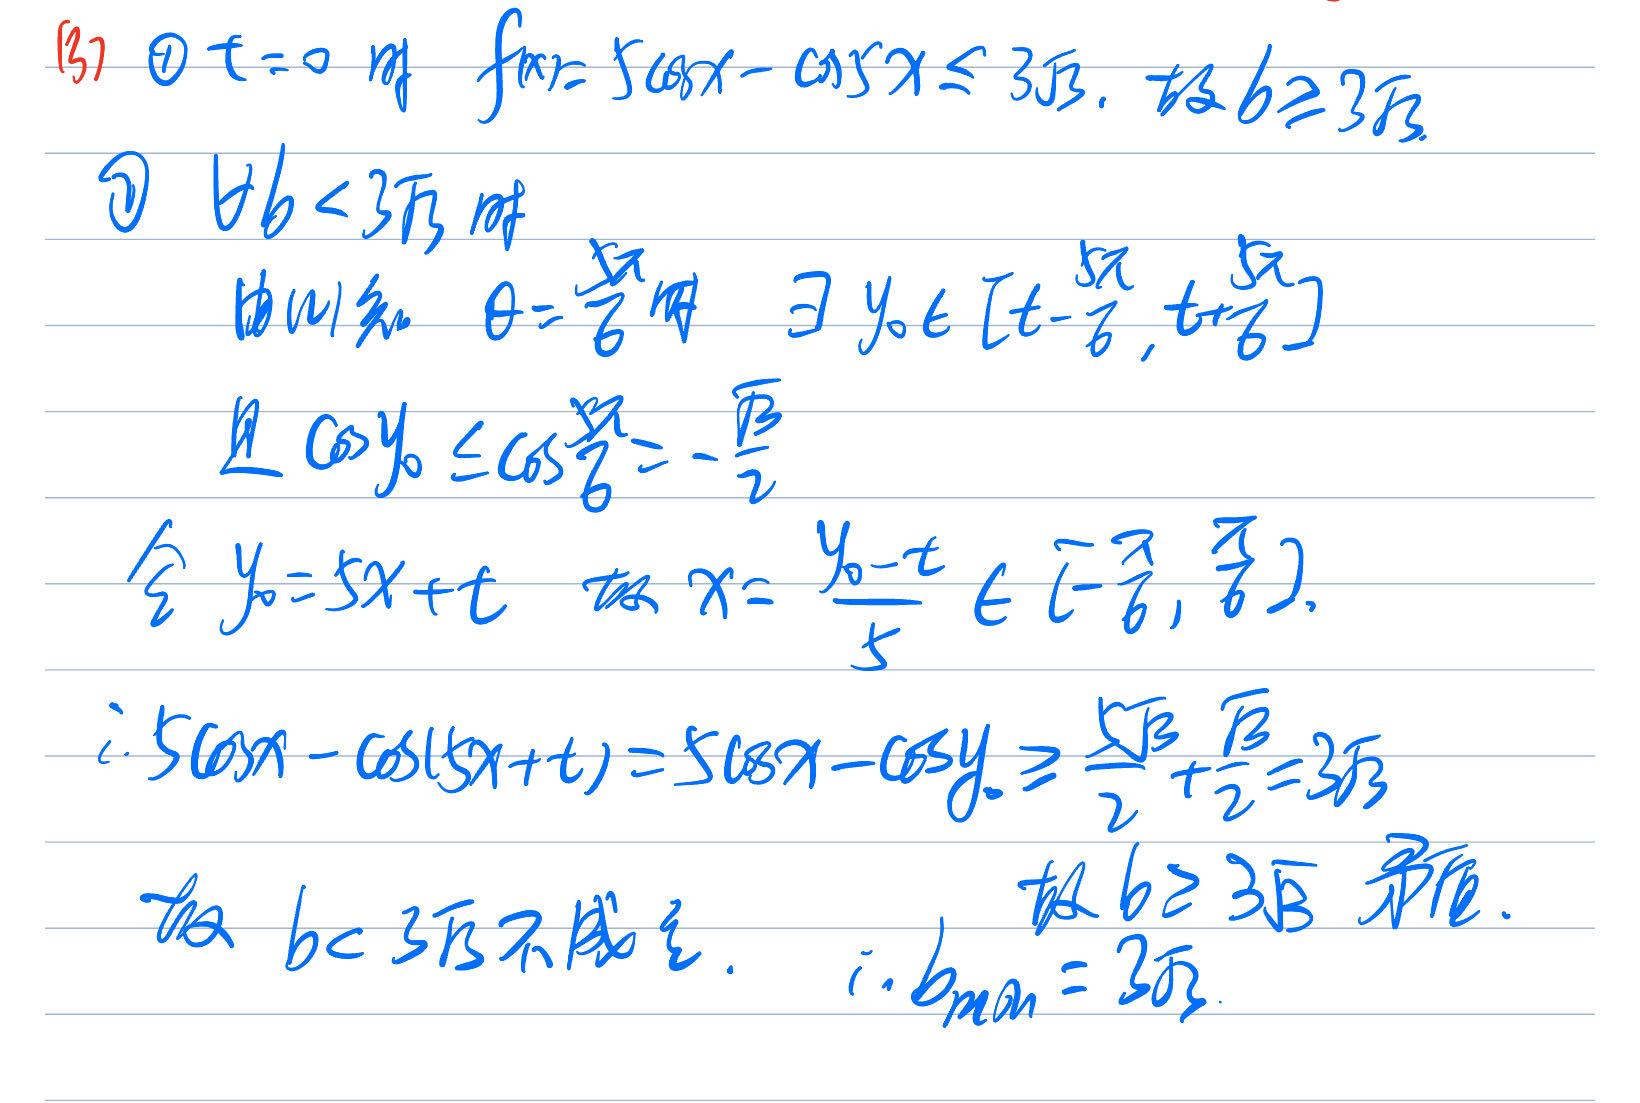 (3) ① t=0 时 f(x)=5cosx-cos5x≤3√3. 故b≥3√3.
② ∀b<3√3 时
由(2)知 θ=5π/6时 ∃y₀∈[t-5π/6, t+5π/6]
且 cosy₀≤cos5π/6=-√3/2
令 y₀=5x+t 故 x=(y₀-t)/5∈[-π/6, π/6].
∴5cosx-cos(5x+t)=5cosx-cosy₀≥5√3/2+√3/2=3√3
故b≥3√3 矛盾.
故 b<3√3不成立. ∴bmin=3√3.